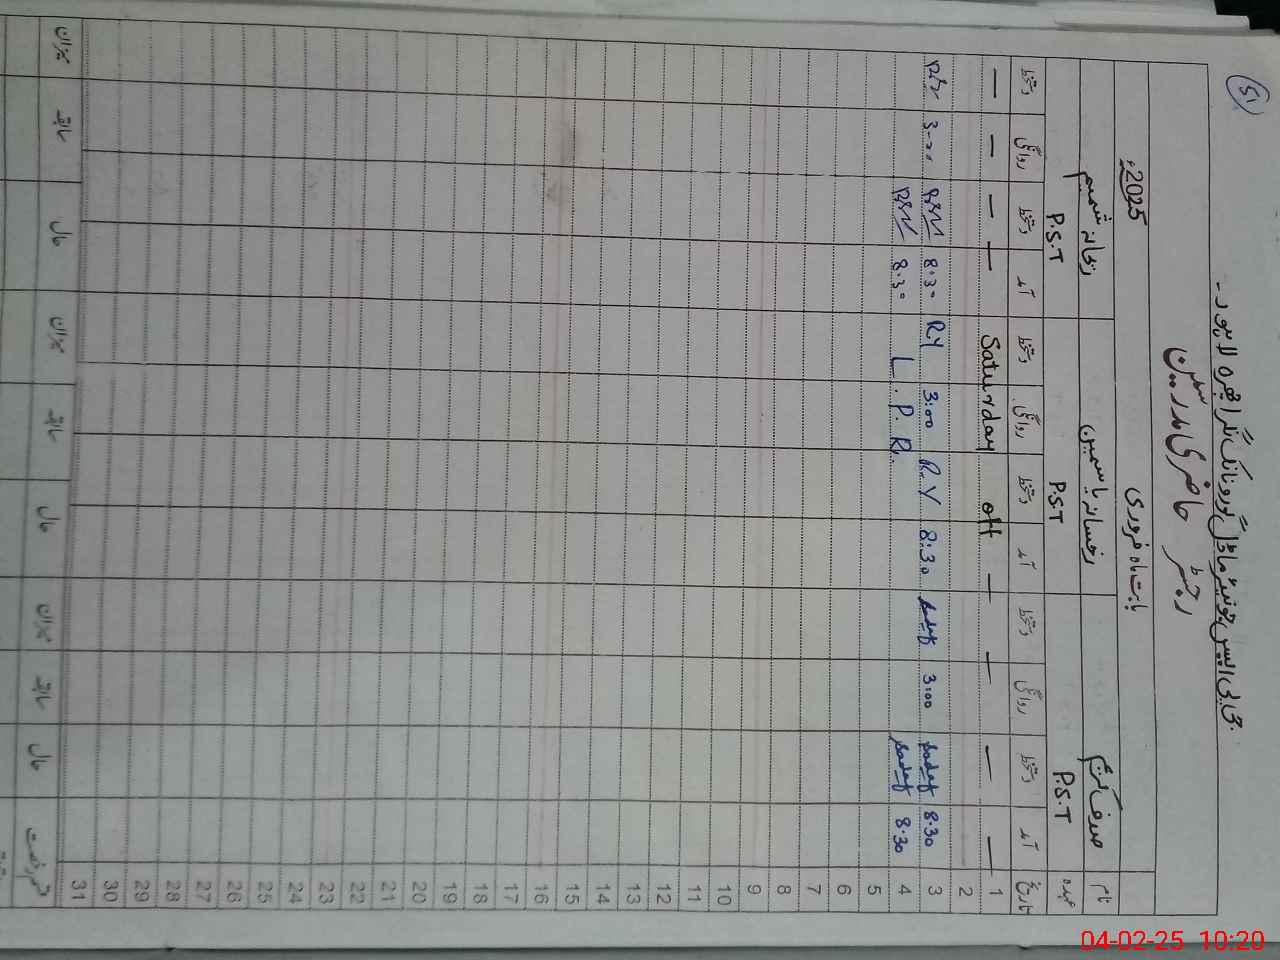 51
جی پی ایس جونیئر ماڈل گورونانک نگر اچھرہ لاہور۔
رجسٹر حاضری مدرسین
بابت ماہ فروری 2025ء
نام صدف کریم رخسانہ یاسمین ریحانہ شمیم
عہدہ P.S.T P.S.T P.S.T
تاریخ آمد دستخط روانگی دستخط آمد دستخط روانگی دستخط آمد دستخط روانگی دستخط
1 — — — — off Saturday — — — —
2
3 8.30 Sadaf 3:00 Sadaf 8:30 R.Y 3:00 RY 8:30 3:00
4 8.30 Sadaf L.P.R. 8:30
5
6
7
8
9
10
11
12
13
14
15
16
17
18
19
20
21
22
23
24
25
26
27
28
29
30
31
قسم رخصت حال سابقہ میزان حال سابقہ میزان حال سابقہ میزان
04-02-25 10:20